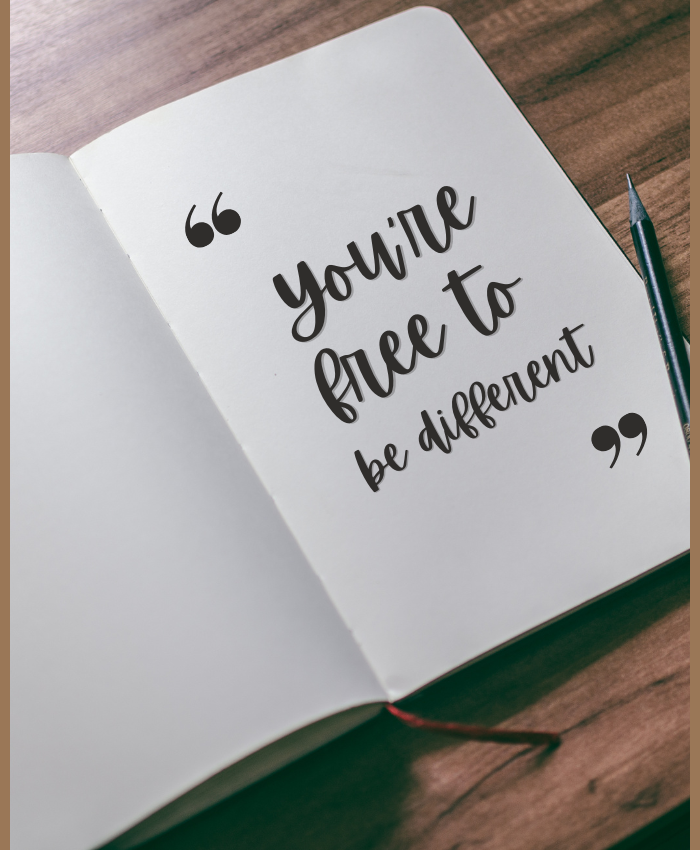 “
you're
free to
be different
”